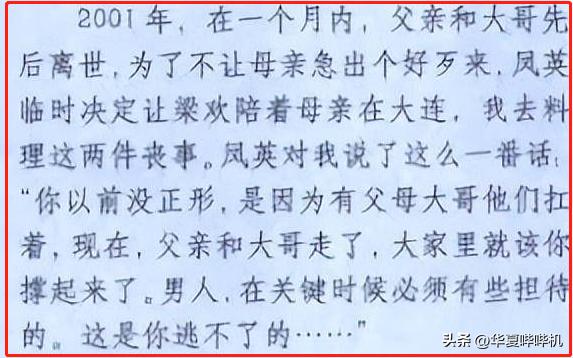 2001年，在一个月内，父亲和大哥先
后离世，为了不让母亲急出个好歹来，凤英
临时决定让梁欢陪着母亲在大连，我去料
理这两件丧事。凤英对我说了这么一番话：
“你以前没正形，是因为有父母大哥他们扛
着，现在，父亲和大哥走了，大家里就该你
撑起来了。男人，在关键时候必须有些担待
的。这是你逃不了的……”
头条 @华夏哔哔机